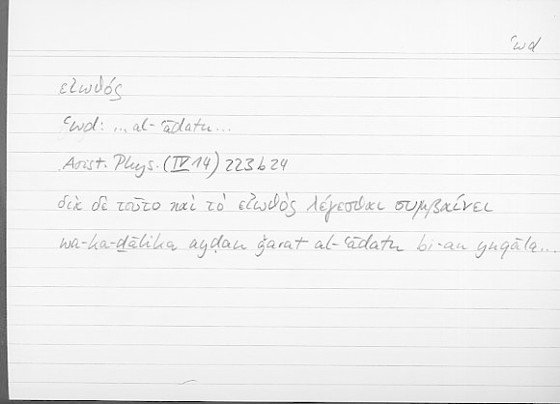 ʿwd
εἰωθός
ʿwd: ... al-ʿādatu ...
Arist. Phys. (IV 14) 223b24
διὰ δὲ τοῦτο καὶ τὸ εἰωθὸς λέγεσθαι συμβαίνει
wa-ka-ḏālika ayḍan ǧarat al-ʿādatu bi-an yuqāla...